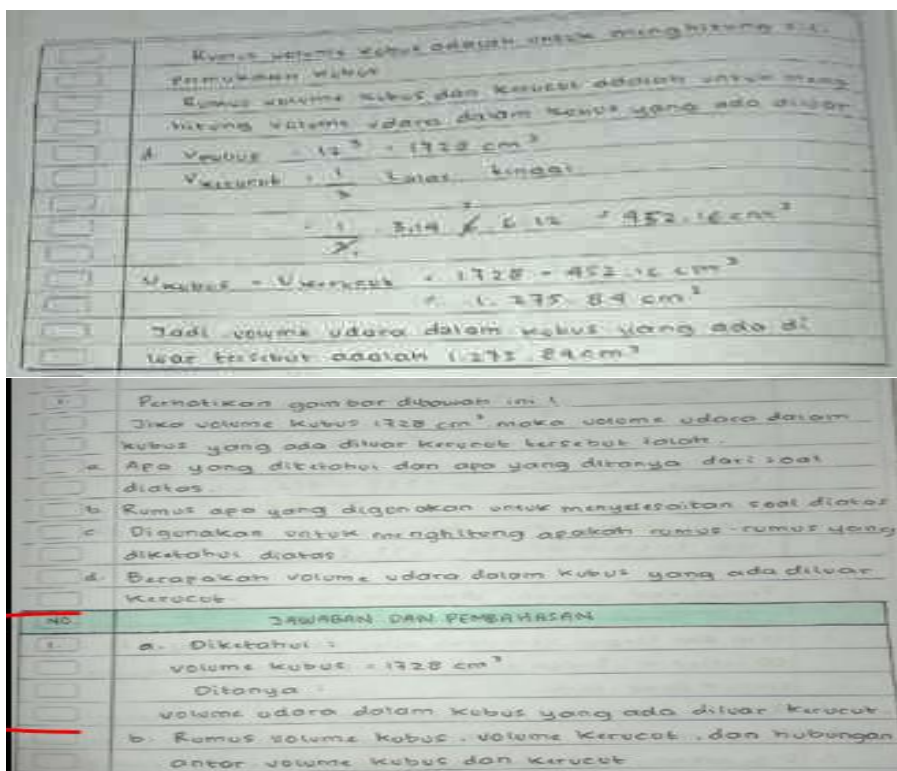 Rumus volume kubus adalah untuk menghitung
Permukaan kubus
Rumus volume kubus dan kerucut adalah untuk meng
hitung volume udara dalam kubus yang ada diluar
d. Vkubus = 12³ = 1728 cm³
Vkerucut = 1/3 . tinggi
= 1/3 . 3,14 . 6 . 6 . 12 = 452,16 cm³
Vkubus - Vkerucut = 1728 - 452,16 cm³
= 1.275,84 cm³
Jadi volume udara dalam kubus yang ada di
luar tersebut adalah 1.275,84 cm³
1. Perhatikan gambar dibawah ini !
Jika volume kubus 1728 cm³ maka volume udara dalam
kubus yang ada diluar kerucut tersebut ialah.
a. Apa yang diketahui dan apa yang ditanya dari soal
diatas.
b. Rumus apa yang digunakan untuk menyelesaikan soal diatas
c. Digunakan untuk menghitung apakah rumus-rumus yang
diketahui diatas.
d. Berapakah volume udara dalam kubus yang ada diluar
kerucut.
NO. JAWABAN DAN PEMBAHASAN
1. a. Diketahui :
volume kubus = 1728 cm³
Ditanya :
volume udara dalam kubus yang ada diluar kerucut
b. Rumus volume kubus, volume kerucut, dan hubungan
antar volume kubus dan kerucut